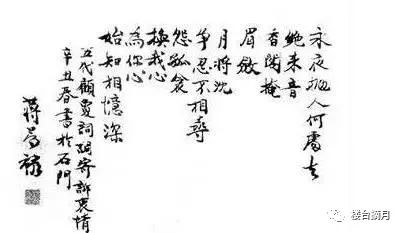 永夜拋人何處去
絕来音
香閣掩
眉斂
月將沈
争忍不相尋
怨孤衾
換我心
為你心
始知相憶深
五代顧夐詞調寄訴衷情
辛丑春書於石門
蔣
楼台摘月